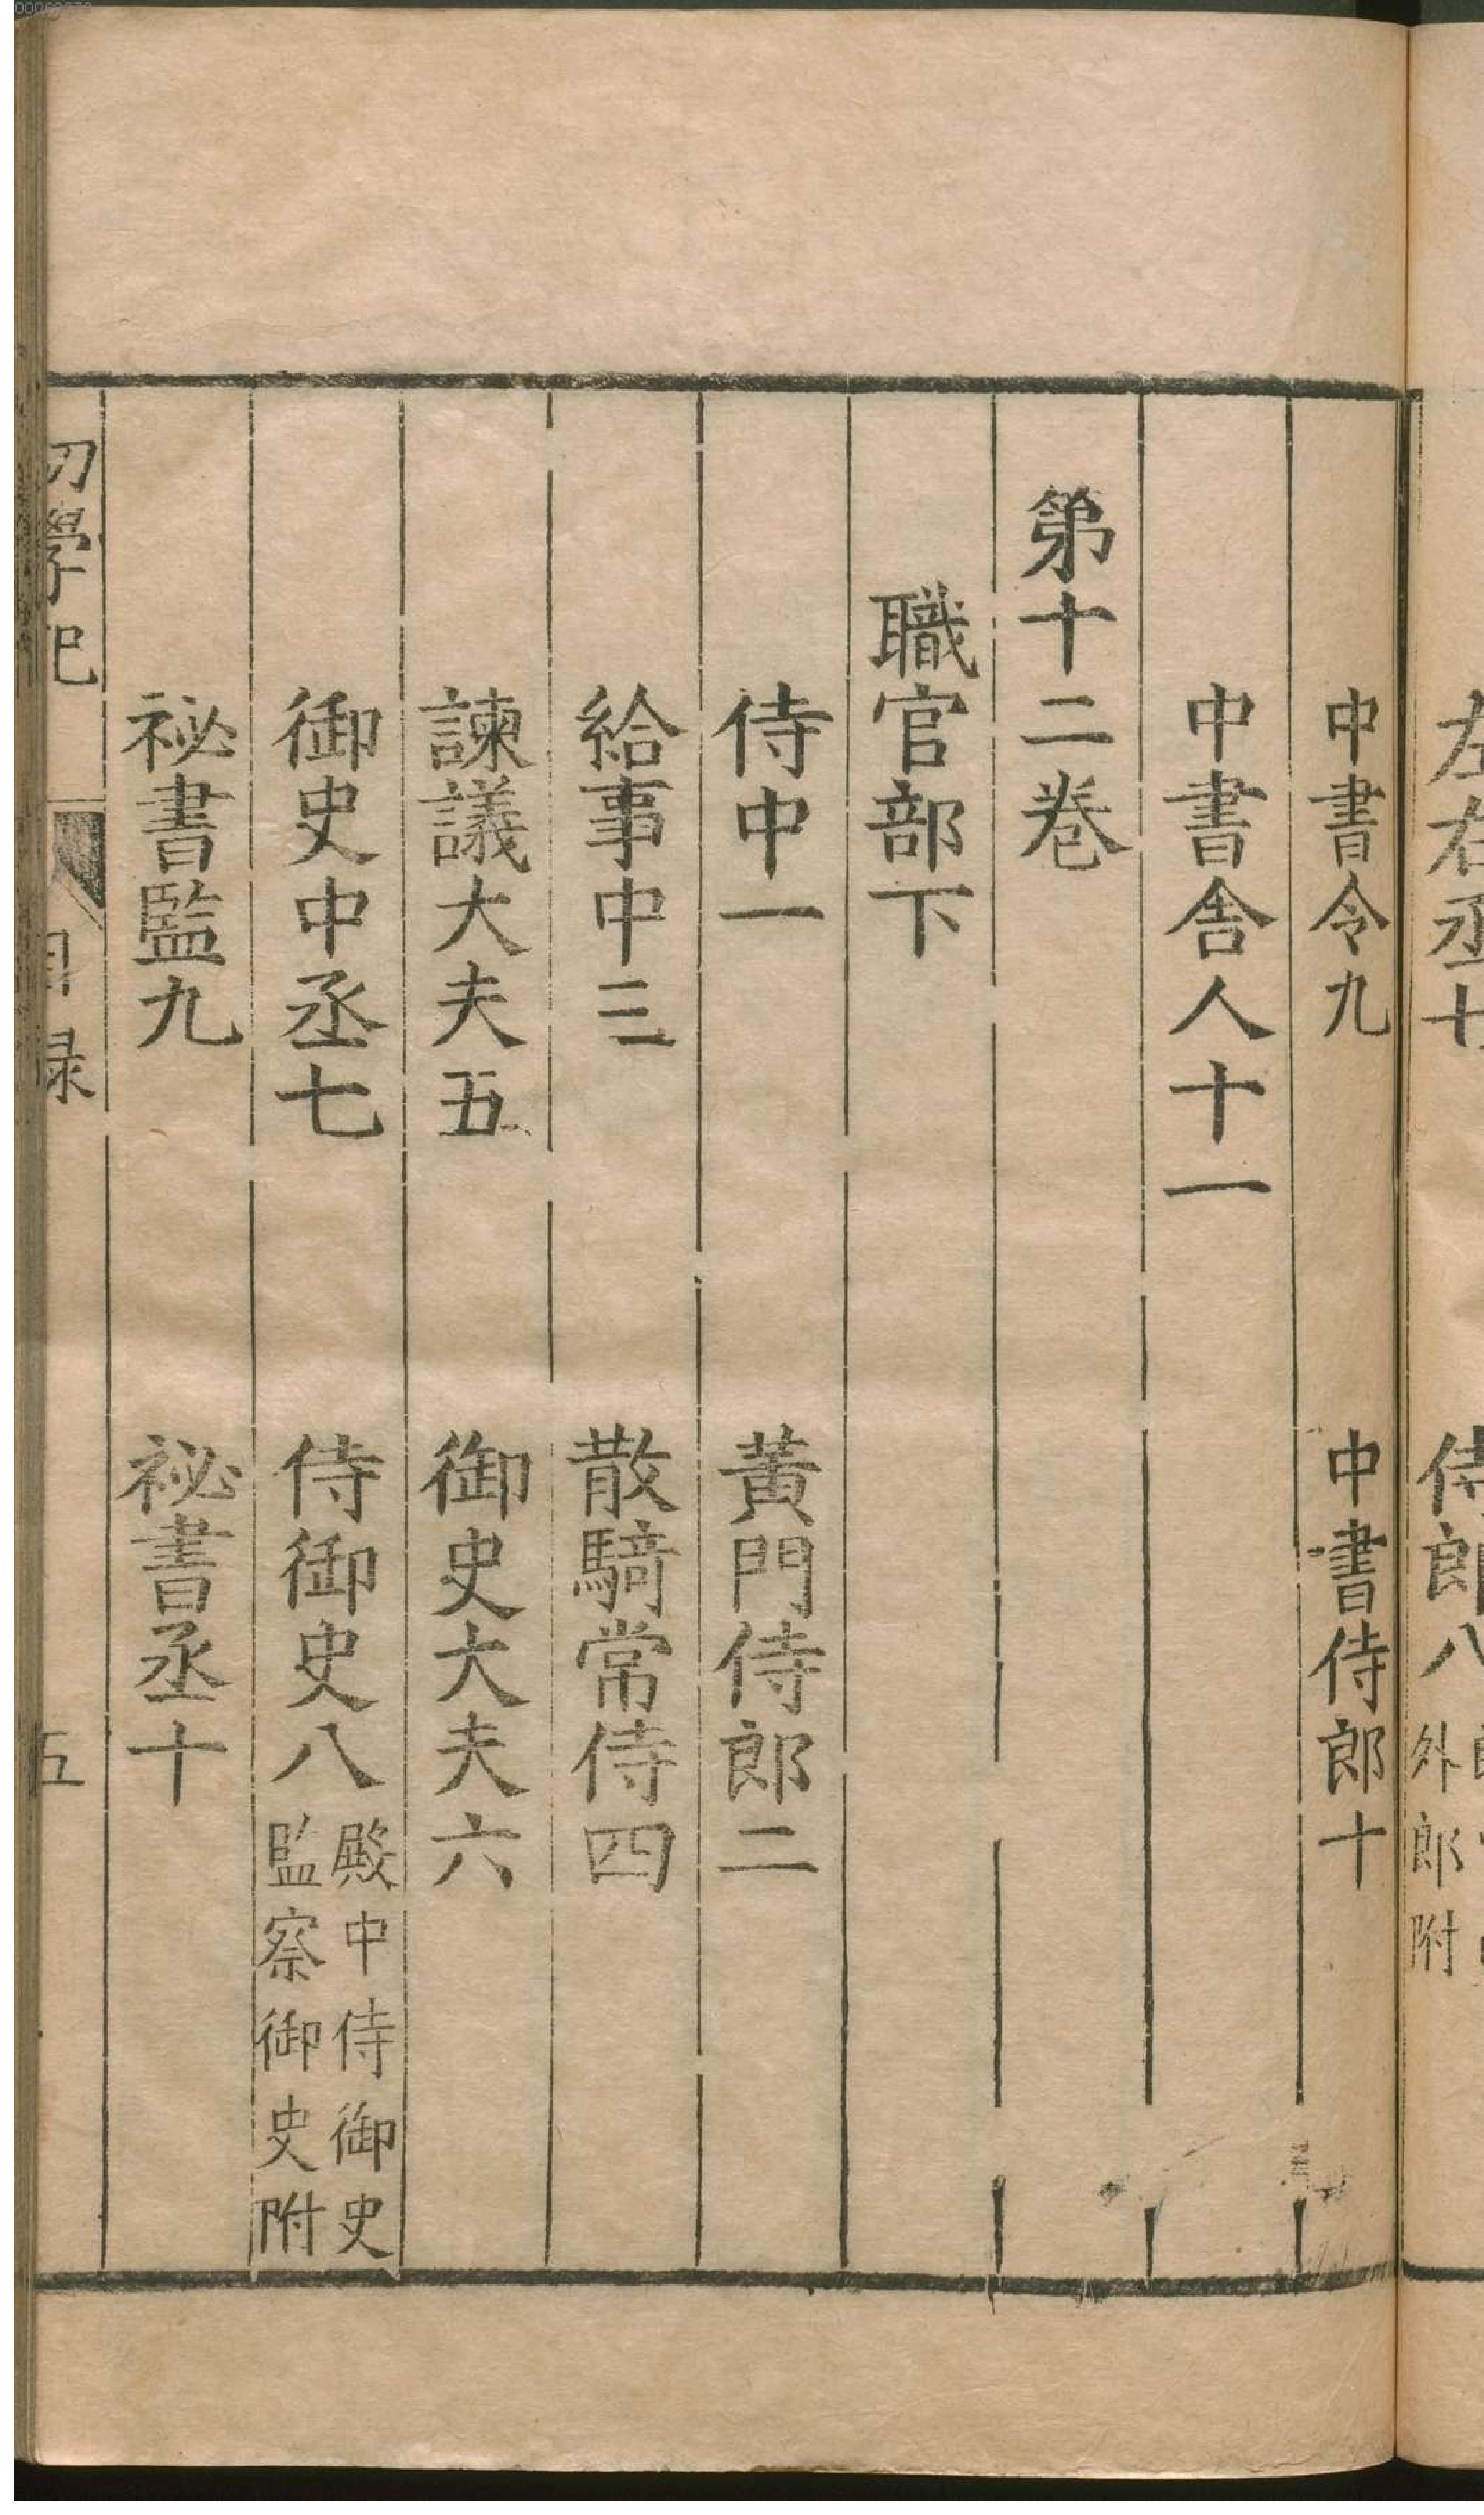 左右丞七　侍郎八
外郎附
中書令九　中書侍郎十
中書舎人十一
第十二卷
職官部下
侍中一　黄門侍郎二
給事中三　散騎常侍四
諫議大夫五　御史大夫六
御史中丞七　侍御史八　殿中侍御史
監察御史附
祕書監九　祕書丞十
初學記　目録　五